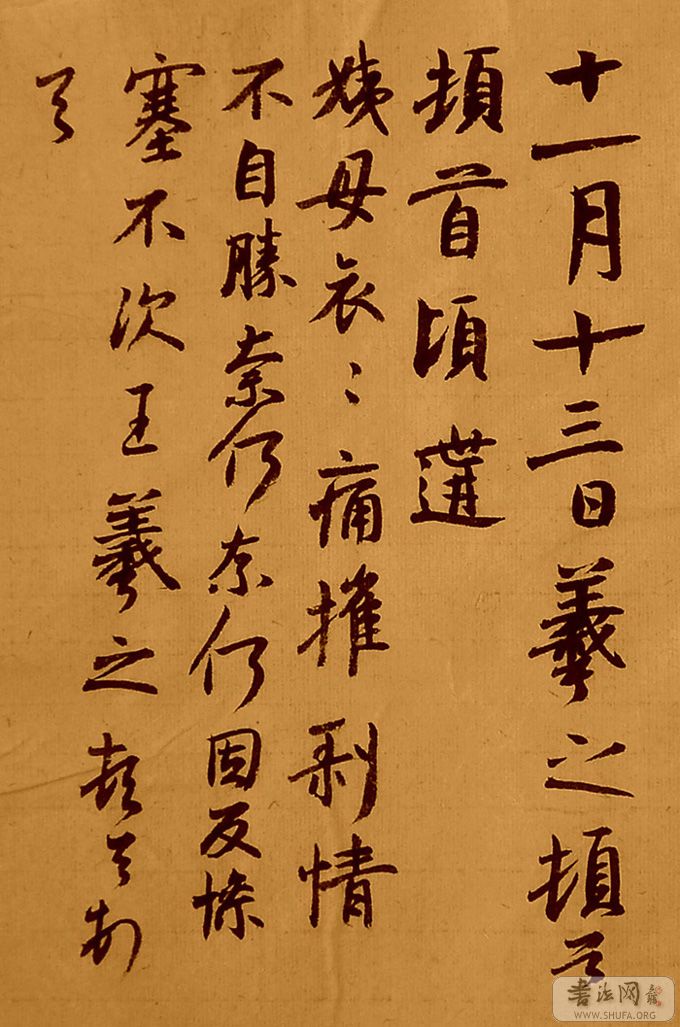 十一月十三日羲之頓首
頓首頃遘
姨母哀〻痛摧剥情
不自勝奈何奈何因反慘
塞不次王羲之頓首頓
首
書法网
WWW.SHUFA.ORG